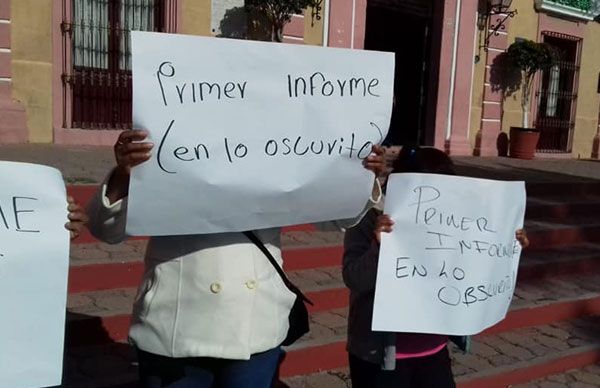 Primer Informe
(en lo oscurito)
PRIMER
INFORME
EN LO
OBSCURITO)
ME